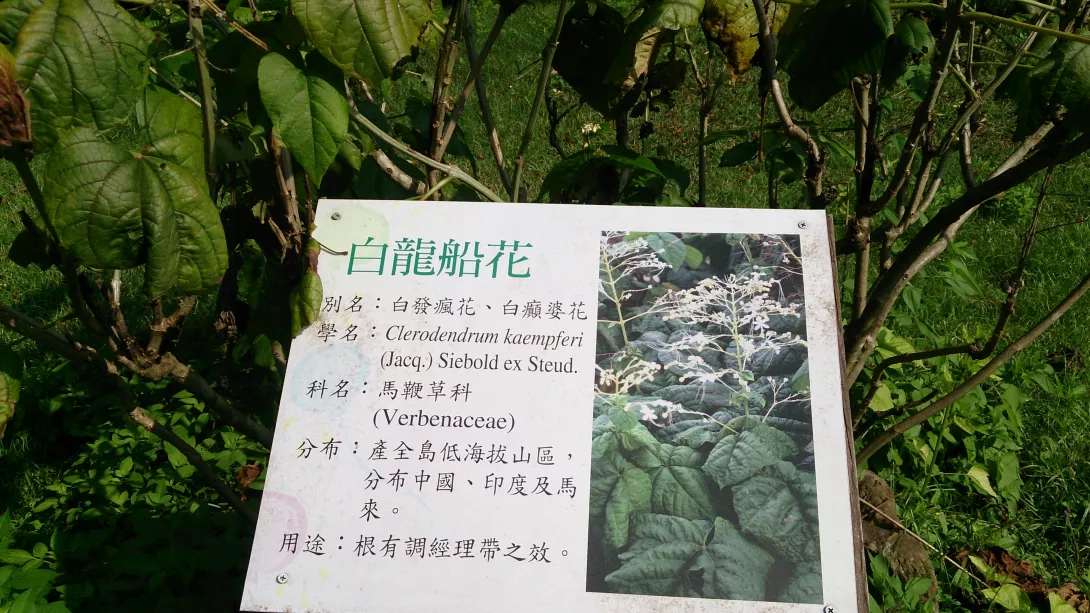 白龍船花
別名：白發瘋花、白癲婆花
學名：Clerodendrum kaempferi
(Jacq.) Siebold ex Steud.
科名：馬鞭草科
(Verbenaceae)
分布：產全島低海拔山區，
分布中國、印度及馬
來。
用途：根有調經理帶之效。